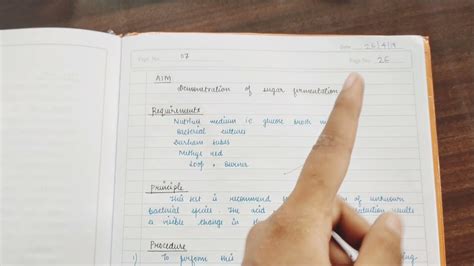 Date 26/4/18
Page No. 07
Page No. 26
AIM
Demonstration of sugar fermentation
Requirements
Nutrient medium is glucose broth
Bacterial cultures
Durham tubes
Methyl red
Loop, Burner
Principle
This test is recommend of unknown
bacterial species. The acid results
a visible change in
Procedure
1) To perform this